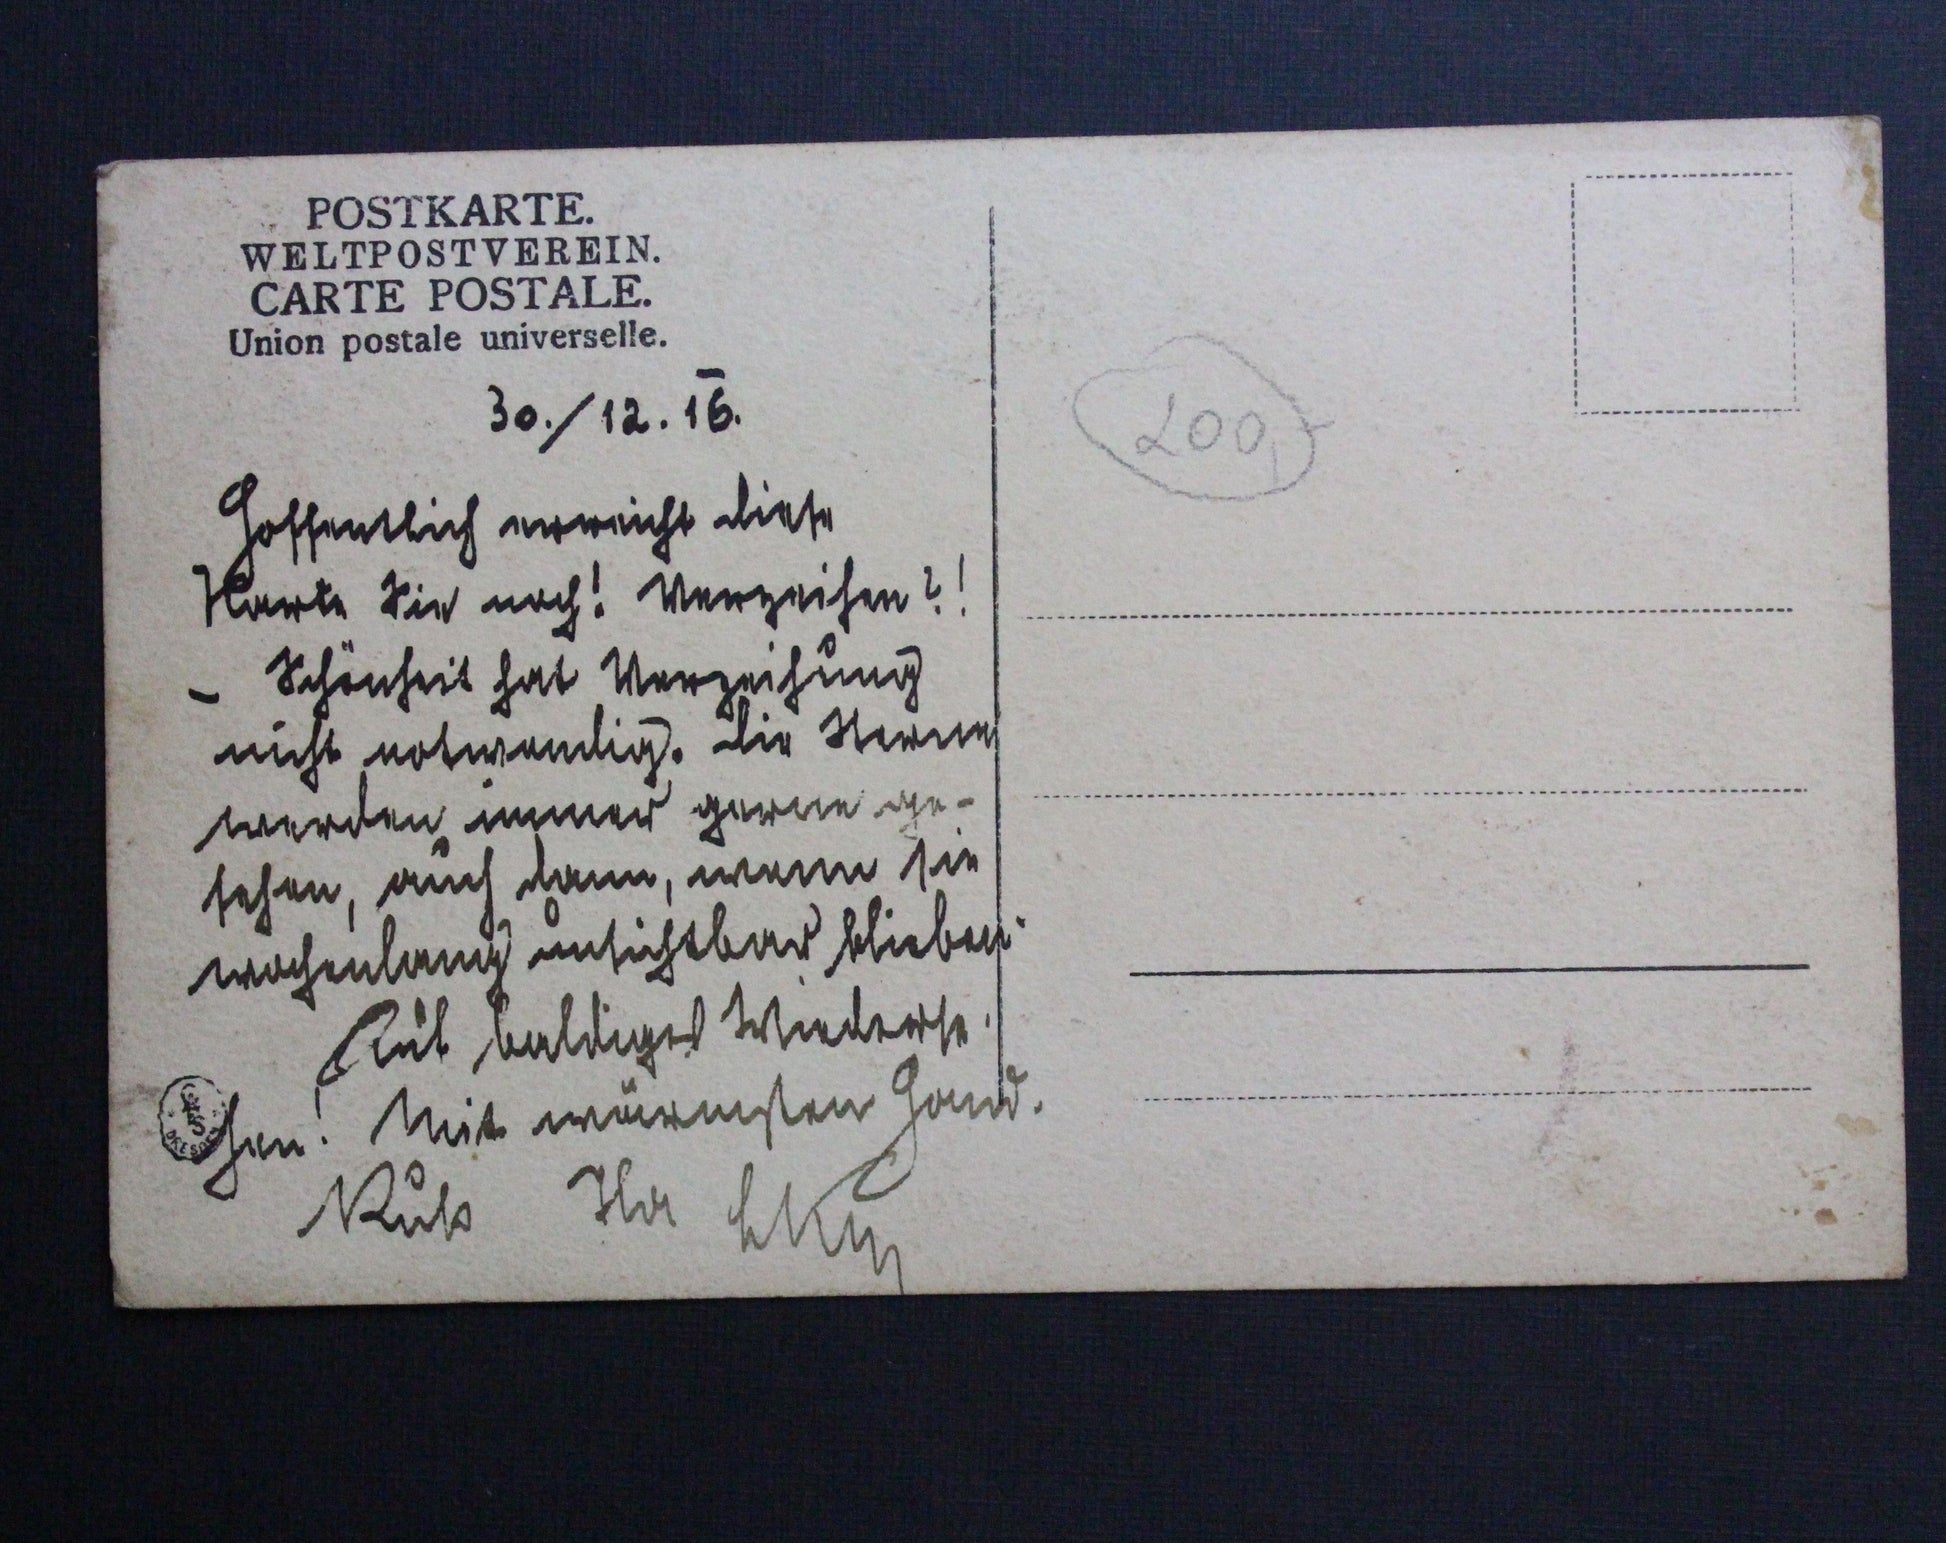 POSTKARTE.
WELTPOSTVEREIN.
CARTE POSTALE.
Union postale universelle.
30./12.16.
200,
Hoffentlich erreicht diese
Karte Sie noch! Verzeihen?!
– Schönheit hat Verzeihung
nicht notwendig. Die Sterne
werden immer gerne ge-
sehen, auch dann, wenn sie
wochenlang unsichtbar blieben.
Auf baldiges Wiederse-
hen! Mit wärmsten Hand-
Kuß Ihr
DRESDEN